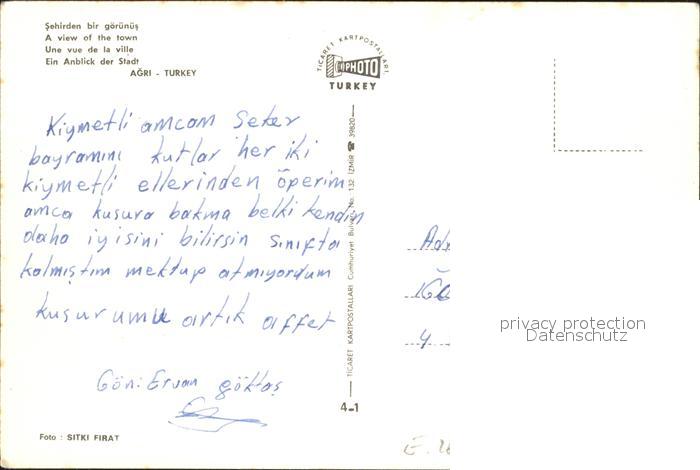 Şehirden bir görünüş
A view of the town
Une vue de la ville
Ein Anblick der Stadt
AĞRI - TURKEY
TİCARET KARTPOSTALLARI,
PHOTO
TURKEY
Kıymetli amcam Şeker
bayramını kutlar her iki
kıymetli ellerinden öperim
amca kusura bakma belki kendim
daha iyisini bilirsin sınıfta
kalmıştım mektup atmıyordum
kusurumu artık affet
Gön: Ervan göktaş
TİCARET KARTPOSTALLARI Cumhuriyet Bulvarı No. 132 İZMİR ☎ 39820
4-1
Foto : SITKI FIRAT
privacy protection
Datenschutz